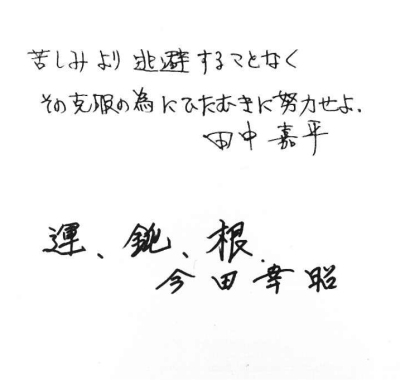 苦しみより逃避することなく
その克服の為にひたむきに努力せよ.
田中嘉平
運、鈍、根.
今田幸昭